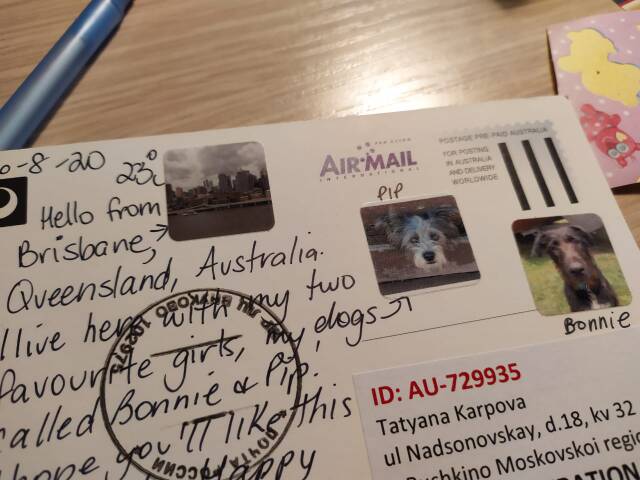 -8-20 23°
Hello from
Brisbane,
Queensland, Australia.
I live here with my two
favourite girls, my dogs
called Bonnie & Pip.
hope you'll like this
Happy
PAR AVION
AIR MAIL
INTERNATIONAL
POSTAGE PRE-PAID AUSTRALIA
FOR POSTING
IN AUSTRALIA
AND DELIVERY
WORLDWIDE
PIP
Bonnie
ID: AU-729935
Tatyana Karpova
ul Nadsonovskay, d.18, kv 32
Pushkino Moskovskoi regio
ПОЧТА РОССИИ